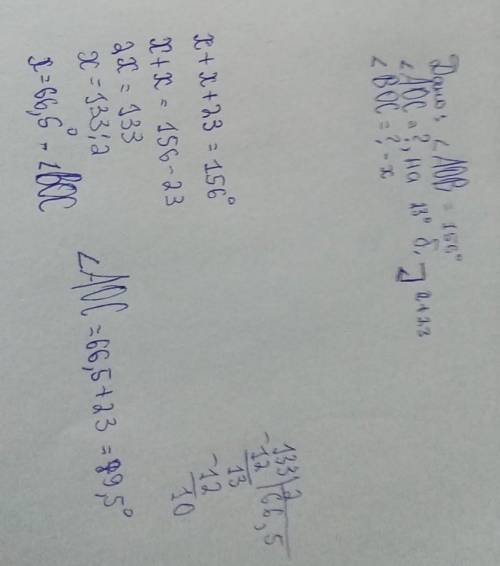 Дано: ∠AOB = 156°
∠AOC = ?, на 23° б. ] x+23
∠BOC = ? - x
x + x + 23 = 156°
x + x = 156 - 23
2x = 133
x = 133:2
x = 66,5° - ∠BOC
∠AOC = 66,5 + 23 = 89,5°
133|2
-12|66,5
13
-12
10